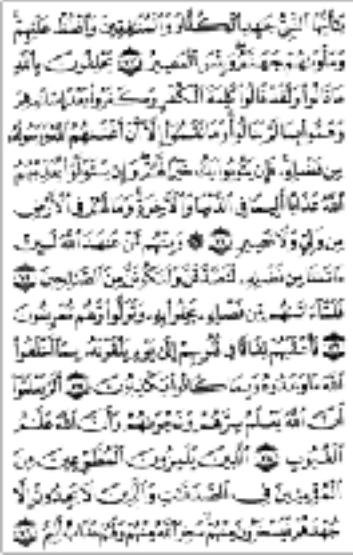 يَٰٓأَيُّهَا ٱلنَّبِىُّ جَٰهِدِ ٱلْكُفَّارَ وَٱلْمُنَٰفِقِينَ وَٱغْلُظْ عَلَيْهِمْ
وَمَأْوَىٰهُمْ جَهَنَّمُ وَبِئْسَ ٱلْمَصِيرُ ۝ يَحْلِفُونَ بِٱللَّهِ
مَا قَالُوا۟ وَلَقَدْ قَالُوا۟ كَلِمَةَ ٱلْكُفْرِ وَكَفَرُوا۟ بَعْدَ إِسْلَٰمِهِمْ
وَهَمُّوا۟ بِمَا لَمْ يَنَالُوا۟ وَمَا نَقَمُوٓا۟ إِلَّآ أَنْ أَغْنَىٰهُمُ ٱللَّهُ وَرَسُولُهُۥ
مِن فَضْلِهِۦ فَإِن يَتُوبُوا۟ يَكُ خَيْرًا لَّهُمْ وَإِن يَتَوَلَّوْا۟ يُعَذِّبْهُمُ
ٱللَّهُ عَذَابًا أَلِيمًا فِى ٱلدُّنْيَا وَٱلْءَاخِرَةِ وَمَا لَهُمْ فِى ٱلْأَرْضِ
مِن وَلِىٍّ وَلَا نَصِيرٍ ۝ ۞ وَمِنْهُم مَّنْ عَٰهَدَ ٱللَّهَ لَئِنْ
ءَاتَىٰنَا مِن فَضْلِهِۦ لَنَصَّدَّقَنَّ وَلَنَكُونَنَّ مِنَ ٱلصَّٰلِحِينَ ۝
فَلَمَّآ ءَاتَىٰهُم مِّن فَضْلِهِۦ بَخِلُوا۟ بِهِۦ وَتَوَلَّوا۟ وَّهُم مُّعْرِضُونَ
۝ فَأَعْقَبَهُمْ نِفَاقًا فِى قُلُوبِهِمْ إِلَىٰ يَوْمِ يَلْقَوْنَهُۥ بِمَآ أَخْلَفُوا۟
ٱللَّهَ مَا وَعَدُوهُ وَبِمَا كَانُوا۟ يَكْذِبُونَ ۝ أَلَمْ يَعْلَمُوٓا۟
أَنَّ ٱللَّهَ يَعْلَمُ سِرَّهُمْ وَنَجْوَىٰهُمْ وَأَنَّ ٱللَّهَ عَلَّٰمُ
ٱلْغُيُوبِ ۝ ٱلَّذِينَ يَلْمِزُونَ ٱلْمُطَّوِّعِينَ مِنَ
ٱلْمُؤْمِنِينَ فِى ٱلصَّدَقَٰتِ وَٱلَّذِينَ لَا يَجِدُونَ إِلَّا
جُهْدَهُمْ فَيَسْخَرُونَ مِنْهُمْ سَخِرَ ٱللَّهُ مِنْهُمْ وَلَهُمْ عَذَابٌ أَلِيمٌ ۝